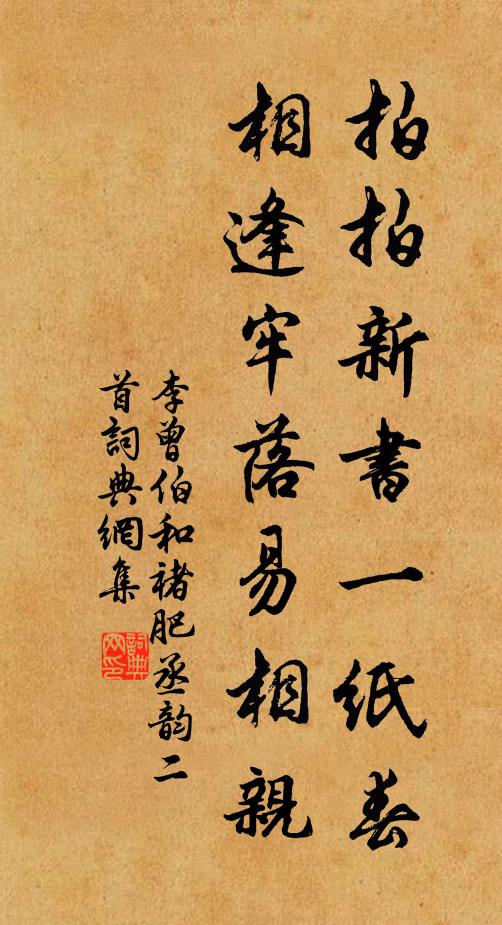 拍拍新書一紙春
相逢牢落易相親
李曾伯和褚肥丞韵二
首詞典網集
詞典
网印